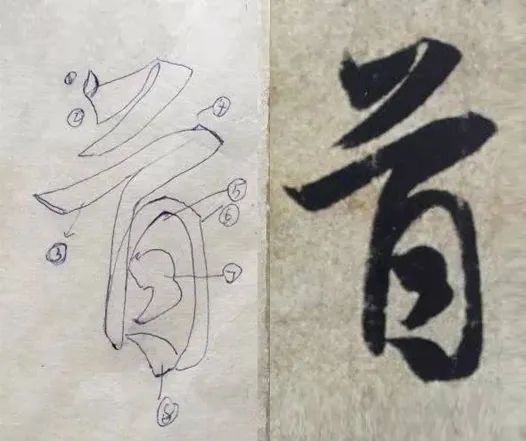 首 首
①
②
④
⑤
⑥
③
⑦
⑧